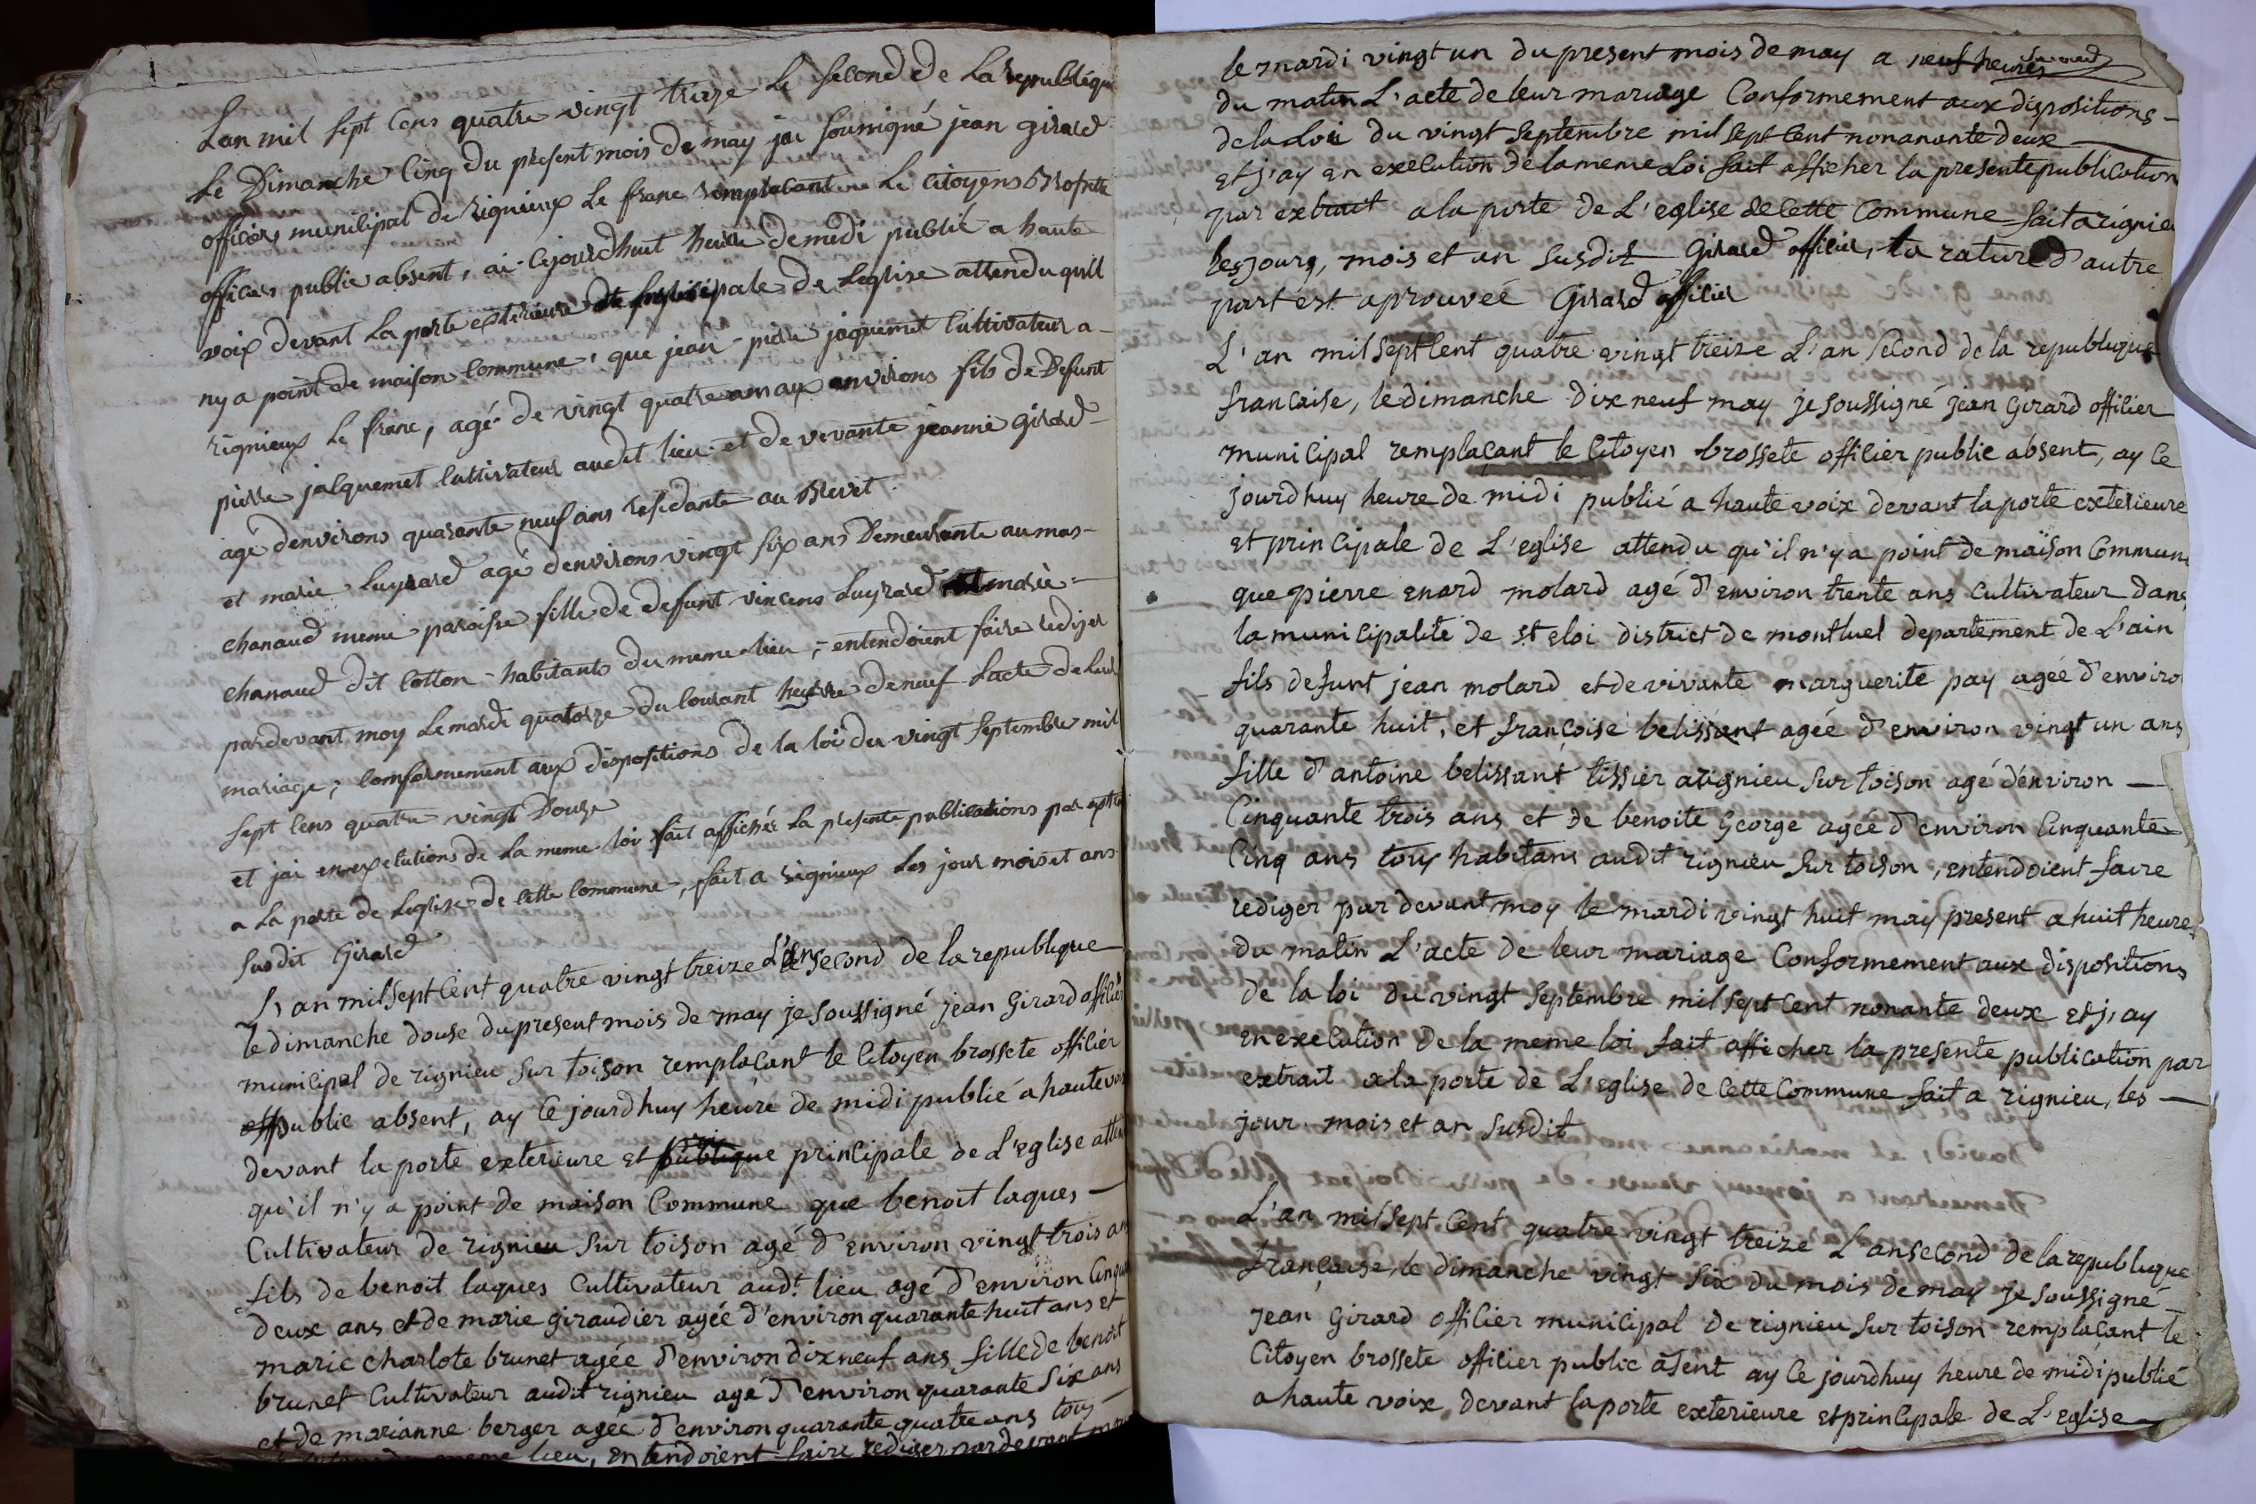 Lan mil sept cens quatre vingt treize Le second de La republique
Le Dimanche cinq du present mois de may jai soussigné jean girard
officier municipal de rignieux Le franc remplacant Le citoyens Brossette
officier public absent, ai cejourdhuit heure de midi publié a haute
voix devant La porte exterieure principale de Leglise attendu quil
ny a point de maison commune, que jean-pierre jaquemet cultivateur a
rignieux Le franc, agé de vingt quatre environs fils de Defunt
pierre jalquemet cultivateur audit lieu et de vivante jeanne girard
agé denvirons quarante neuf ans residante au Bievet
et marie Luyrard agé denvirons vingt six ans Demeurante au mas
chanaud meme paroisse fille de defunt vincens Luyrard et marie
chanaud dit cotton habitants du meme lieu, entendoient faire rediger
pardevant moy Le mardi quatorze du courant heure de neuf Lacte de Leur
mariage, comformement aux dispositions de la loi du vingt septembre mil
sept cens quatre vingt Douze
et jai en execution de La meme loi fait afficher La presente publications par extrait
a La porte de Leglise de cette commune, fait a rignieux Les jour mois et ans
susdit Girard
L'an mil sept cent quatre vingt treize L'an second de la republique
le dimanche douse du present mois de may je soussigné jean Girard officier
municipal de rignieu sur toison remplaçant le citoyen brossete officier
public absent, ay ce jourdhuy heure de midi publié a haute voix
devant la porte exterieure et publique principale de L'eglise atten
qu'il n'y a point de maison commune que benoit laques
cultivateur de rignieu sur toison agé d'environ vingt trois ans
fils de benoit laques cultivateur aud.t lieu agé d'environ cinquante
deux ans et de marie giraudier agée d'environ quarante huit ans et
marie charlote brunet agée d'environ dix neuf ans fille de benoit
brunet cultivateur audit rignieu agé d'environ quarante six ans
et de marianne berger agée d'environ quarante quatre ans tous
meme lieu, entendoient faire rediger pardevant moy
le mardi vingt un du present mois de may a neuf heures
du matin L'acte de leur mariage Conformement aux dispositions
de la Loi du vingt septembre mil sept cent nonanante deux
et j'ay en execution de la meme Loi fait afficher la presente publication
par extrait a la porte de L'eglise de cette Commune fait a rignieu
les jours, mois et an susdit Girard officier, la rature d'autre
part est aprouveé Girard officier
L'an mil sept cent quatre vingt treize L'an second de la republique
francaise, le dimanche dix neuf may je soussigné jean Girard officier
municipal remplaçant le Citoyen brossete officier public absent, ay ce
jourdhuy heure de midi publié a haute voix devant la porte exterieure
et principale de L'eglise attendu qu'il n'y a point de maison Commune
que pierre enard molard agé d'environ trente ans cultivateur dans
la municipalité de st eloi district de montluel departement de L'ain
fils defunt jean molard et de vivante marguerite pay agée d'environ
quarante huit, et françoise belissant agée d'environ vingt un ans
fille d'antoine belissant tissier a rignieu sur toison agé d'environ
Cinquante trois ans et de benoite George agée d'environ Cinquante
Cinq ans tous habitans audit rignieu sur toison, entendoient faire
rediger par devant moy le mardi vingt huit may present a huit heures
du matin L'acte de leur mariage Conformement aux dispositions
de la loi du vingt septembre mil sept cent nonante deux et j'ay
en execution de la meme loi fait afficher la presente publication par
extrait a la porte de L'eglise de Cette Commune fait a rignieu, les
jour mois et an susdit
L'an mil sept Cent quatre vingt treize L'an second de la republique
française, le dimanche vingt six du mois de may je soussigné
jean Girard officier municipal de rignieu sur toison remplaçant le
Citoyen brossete officier public asent ay ce jourdhuy heure de midi publié
a haute voix devant la porte exterieure et principale de L'eglise